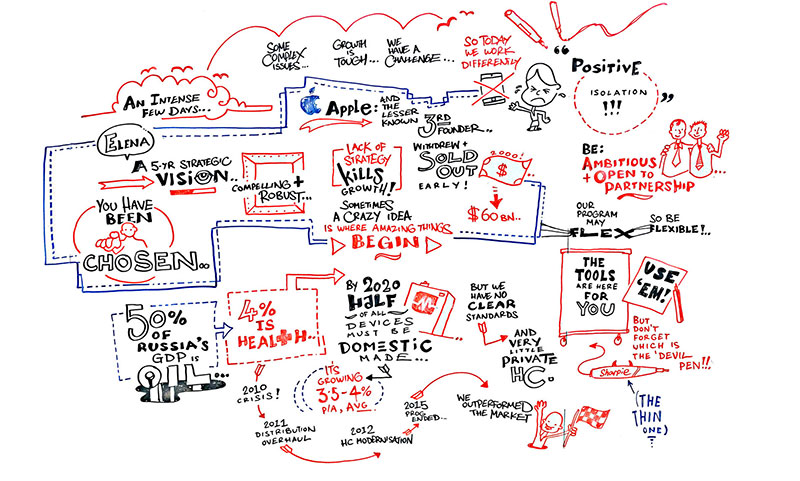 SOME
COMPLEX
ISSUES...
GROWTH
IS
TOUGH...
WE
HAVE A
CHALLENGE...
SO TODAY
WE WORK
DIFFERENTLY
"POSITIVE
ISOLATION
!!!"
AN INTENSE
FEW DAYS...
APPLE:
AND
THE
LESSER
KNOWN
3RD
FOUNDER..
WITHDREW +
SOLD
OUT
EARLY!
2000!
$
$60BN...
ELENA
A 5-YR STRATEGIC
VISION..
COMPELLING +
ROBUST...
LACK OF
STRATEGY
KILLS
GROWTH!
SOMETIMES
A CRAZY IDEA
IS WHERE AMAZING THINGS
BEGIN
YOU HAVE
BEEN
CHOSEN..
BE:
AMBITIOUS
+ OPEN TO
PARTNERSHIP
OUR
PROGRAM
MAY
FLEX
SO BE
FLEXIBLE!..
THE
TOOLS
ARE HERE
FOR
YOU
USE
'EM!
BUT
DON'T
FORGET
WHICH IS
THE 'DEVIL
PEN'!!
Sharpie
(THE
THIN
ONE)
50%
OF
RUSSIA'S
GDP IS
OIL...
4%
IS
HEALTH..
BY 2020
HALF
OF ALL
DEVICES
MUST BE
DOMESTIC
MADE...
BUT WE
HAVE NO
CLEAR
STANDARDS
AND
VERY
LITTLE
PRIVATE
HC.
IT'S
GROWING
3.5-4%
P/A, AVG
2010
CRISIS!
2011
DISTRIBUTION
OVERHAUL
2012
HC MODERNISATION
2015
PROG
ENDED...
WE
OUTPERFORMED
THE MARKET